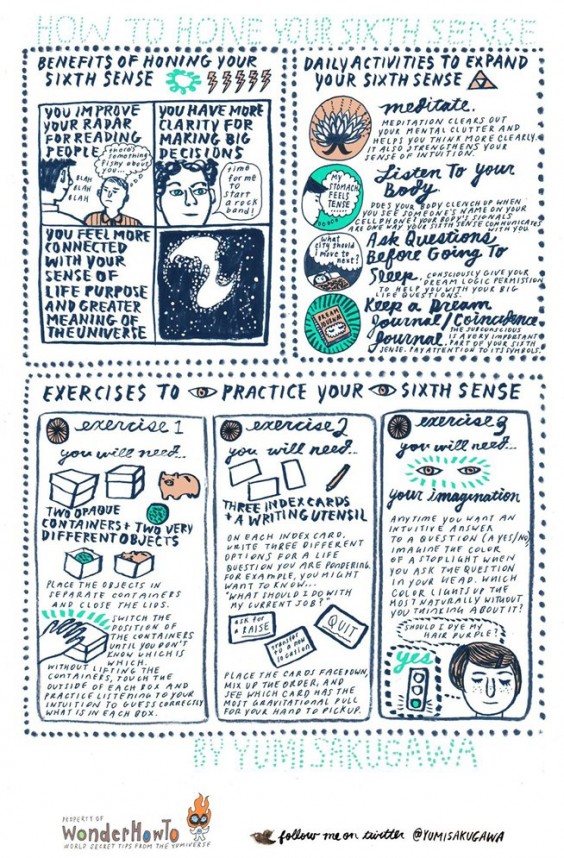 HOW TO HONE YOUR SIXTH SENSE
BENEFITS OF HONING YOUR
SIXTH SENSE
YOU IMPROVE
YOUR RADAR
FOR READING
PEOPLE
there's
something
fishy about
you...
BLAH
BLAH
BLAH
YOU HAVE MORE
CLARITY FOR
MAKING BIG
DECISIONS
time
for me
to
start
a rock
band!
YOU FEEL MORE
CONNECTED
WITH YOUR
SENSE OF
LIFE PURPOSE
AND GREATER
MEANING OF
THE UNIVERSE
DAILY ACTIVITIES TO EXPAND
YOUR SIXTH SENSE
meditate.
MEDITATION CLEARS OUT
YOUR MENTAL CLUTTER AND
HELPS YOU THINK MORE CLEARLY.
IT ALSO STRENGTHENS YOUR
SENSE OF INTUITION.
MY
STOMACH
FEELS
TENSE
Listen to your
Body.
DOES YOUR BODY CLENCH UP WHEN
YOU SEE SOMEONE'S NAME ON YOUR
CELLPHONE? YOUR BODY'S SIGNALS
ARE ONE WAY YOUR SIXTH SENSE COMMUNICATES
WITH YOU.
What
city should
I move to
next?
Ask Questions
Before Going to
Sleep. CONSCIOUSLY GIVE YOUR
DREAM LOGIC PERMISSION
TO HELP YOU WITH YOUR BIG
LIFE QUESTIONS.
DREAM
JOURNAL
Keep a Dream
Journal/Coincidence
Journal. THE SUBCONSCIOUS
IS A VERY IMPORTANT
PART OF YOUR SIXTH
SENSE. PAY ATTENTION TO ITS SYMBOLS.
EXERCISES TO PRACTICE YOUR SIXTH SENSE
exercise 1
you will need...
TWO OPAQUE
CONTAINERS + TWO VERY
DIFFERENT OBJECTS
PLACE THE OBJECTS IN
SEPARATE CONTAINERS
AND CLOSE THE LIDS.
SWITCH THE
POSITION OF
THE CONTAINERS
UNTIL YOU DON'T
KNOW WHICH IS
WHICH.
WITHOUT LIFTING THE
CONTAINERS, TOUCH THE
OUTSIDE OF EACH BOX AND
PRACTICE LISTENING TO YOUR
INTUITION TO GUESS CORRECTLY
WHAT IS IN EACH BOX.
exercise 2
you will need...
THREE INDEX CARDS
+ A WRITING UTENSIL
ON EACH INDEX CARD,
WRITE THREE DIFFERENT
OPTIONS FOR A LIFE
QUESTION YOU ARE PONDERING.
FOR EXAMPLE, YOU MIGHT
WANT TO KNOW...
"WHAT SHOULD I DO WITH
MY CURRENT JOB?"
ask for
a RAISE
transfer
to a new
location
QUIT
PLACE THE CARDS FACEDOWN,
MIX UP THE ORDER, AND
SEE WHICH CARD HAS THE
MOST GRAVITATIONAL PULL
FOR YOUR HAND TO PICK UP.
exercise 3
you will need...
your imagination
ANYTIME YOU WANT AN
INTUITIVE ANSWER
TO A QUESTION (A YES/NO)
IMAGINE THE COLOR
OF A STOPLIGHT WHEN
YOU ASK THE QUESTION
IN YOUR HEAD. WHICH
COLOR LIGHTS UP THE
MOST NATURALLY WITHOUT
YOU THINKING ABOUT IT?
SHOULD I DYE MY
HAIR PURPLE?
yes
BY YUMI SAKUGAWA
PROPERTY OF
WonderHowTo
WORLD SECRET TIPS FROM THE YUMIVERSE
follow me on twitter @YUMISAKUGAWA